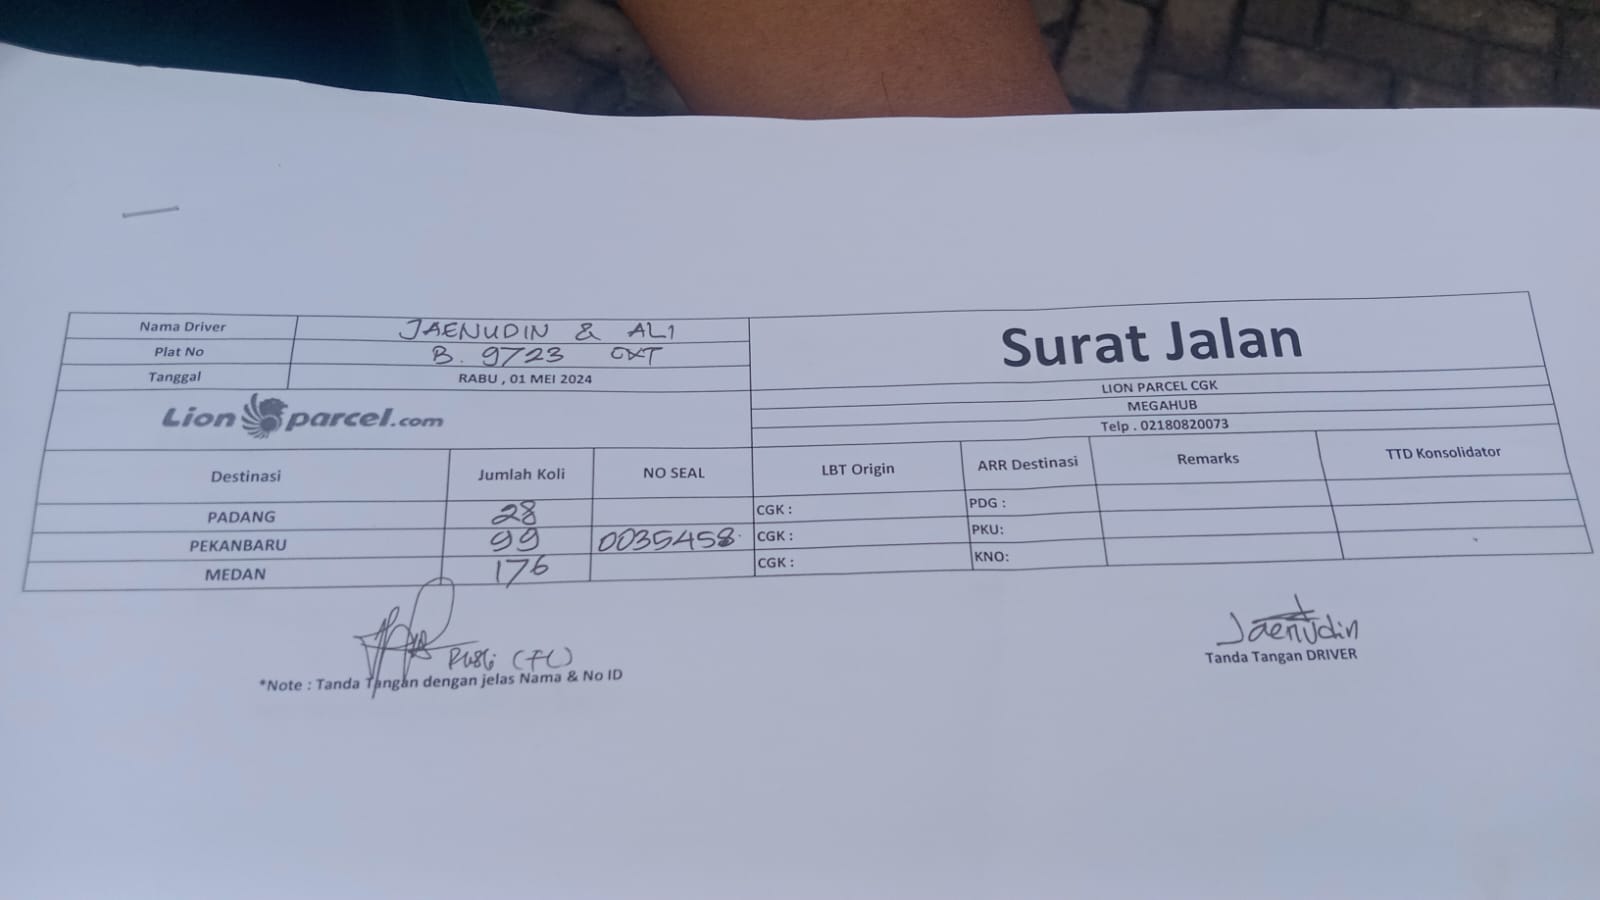 Nama Driver JAENUDIN & ALI
Plat No B. 9723 OXT
Tanggal RABU , 01 MEI 2024
Surat Jalan
LION PARCEL CGK
MEGAHUB
Telp . 02180820073
Lion parcel.com
Destinasi Jumlah Koli NO SEAL LBT Origin ARR Destinasi Remarks TTD Konsolidator
PADANG 28 CGK : PDG :
PEKANBARU 99 0035458 CGK : PKU:
MEDAN 176 CGK : KNO:
(FL)
*Note : Tanda Tangan dengan jelas Nama & No ID
Jaenudin
Tanda Tangan DRIVER